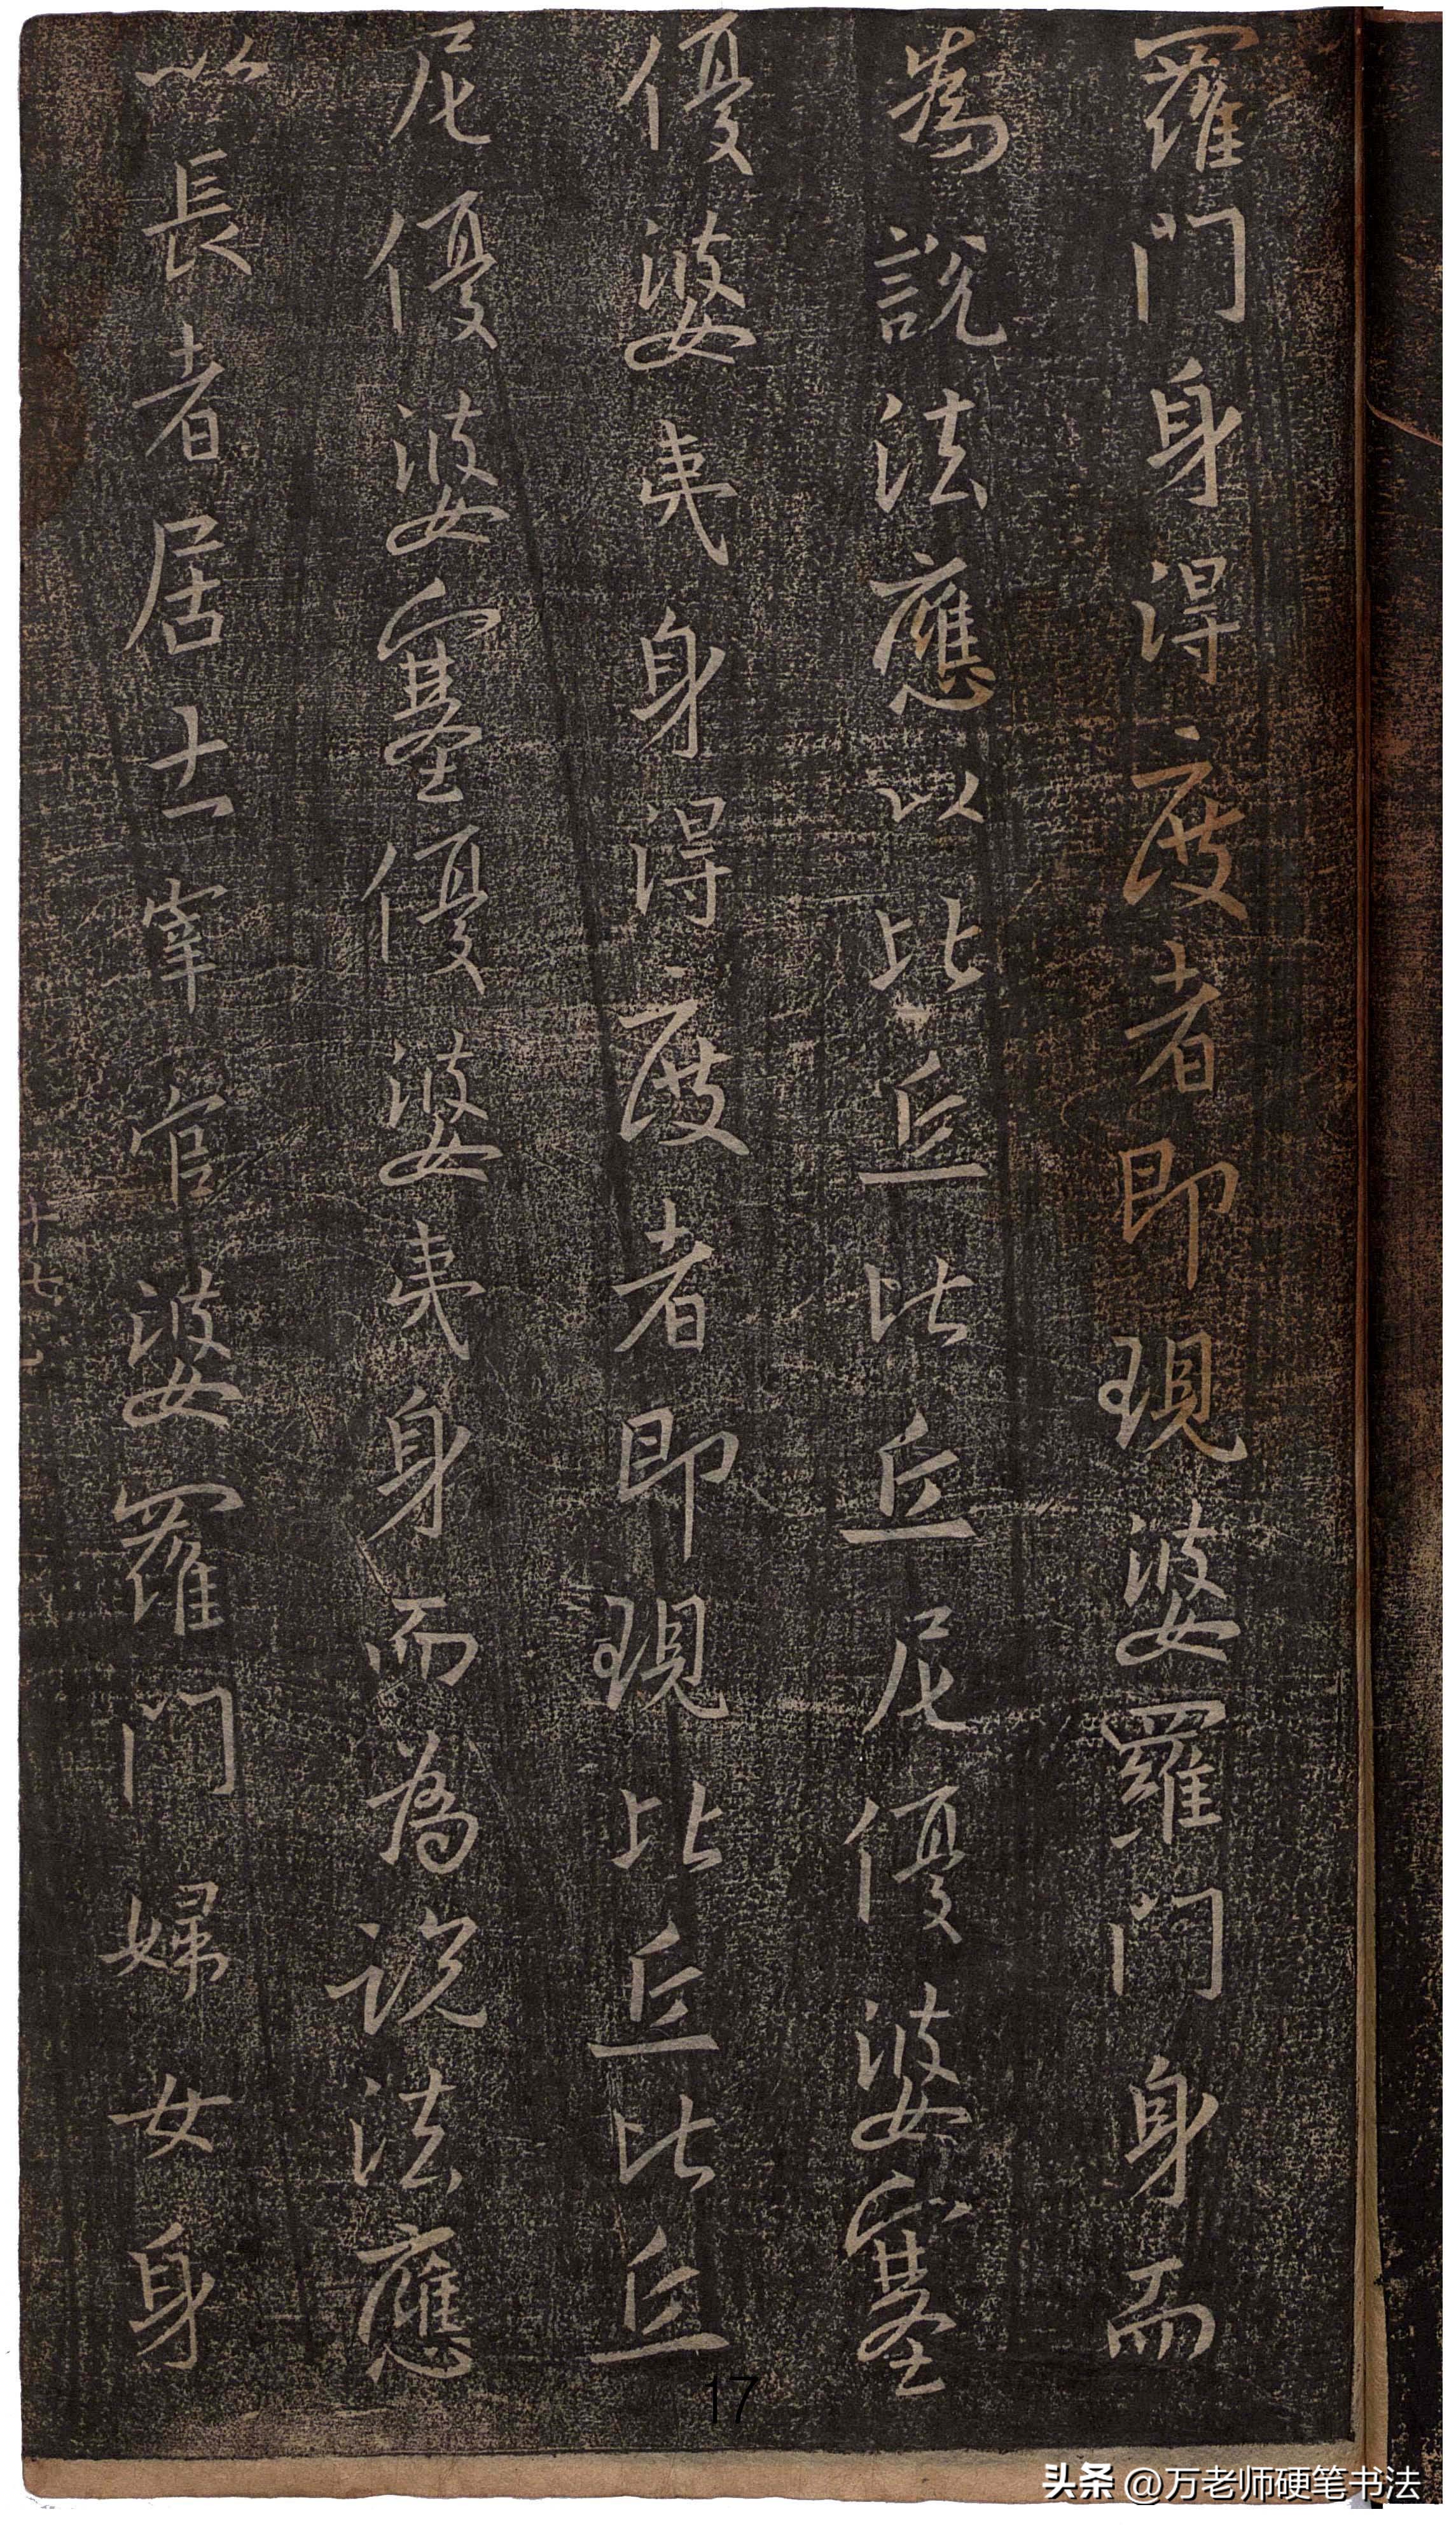 羅門身得度者即現婆羅門身而
為說法應以比丘比丘尼優婆塞
優婆夷身得度者即現比丘比丘
尼優婆塞優婆夷身而為說法應
以長者居士宰官婆羅門婦女身
十七
17
头条 @万老师硬笔书法